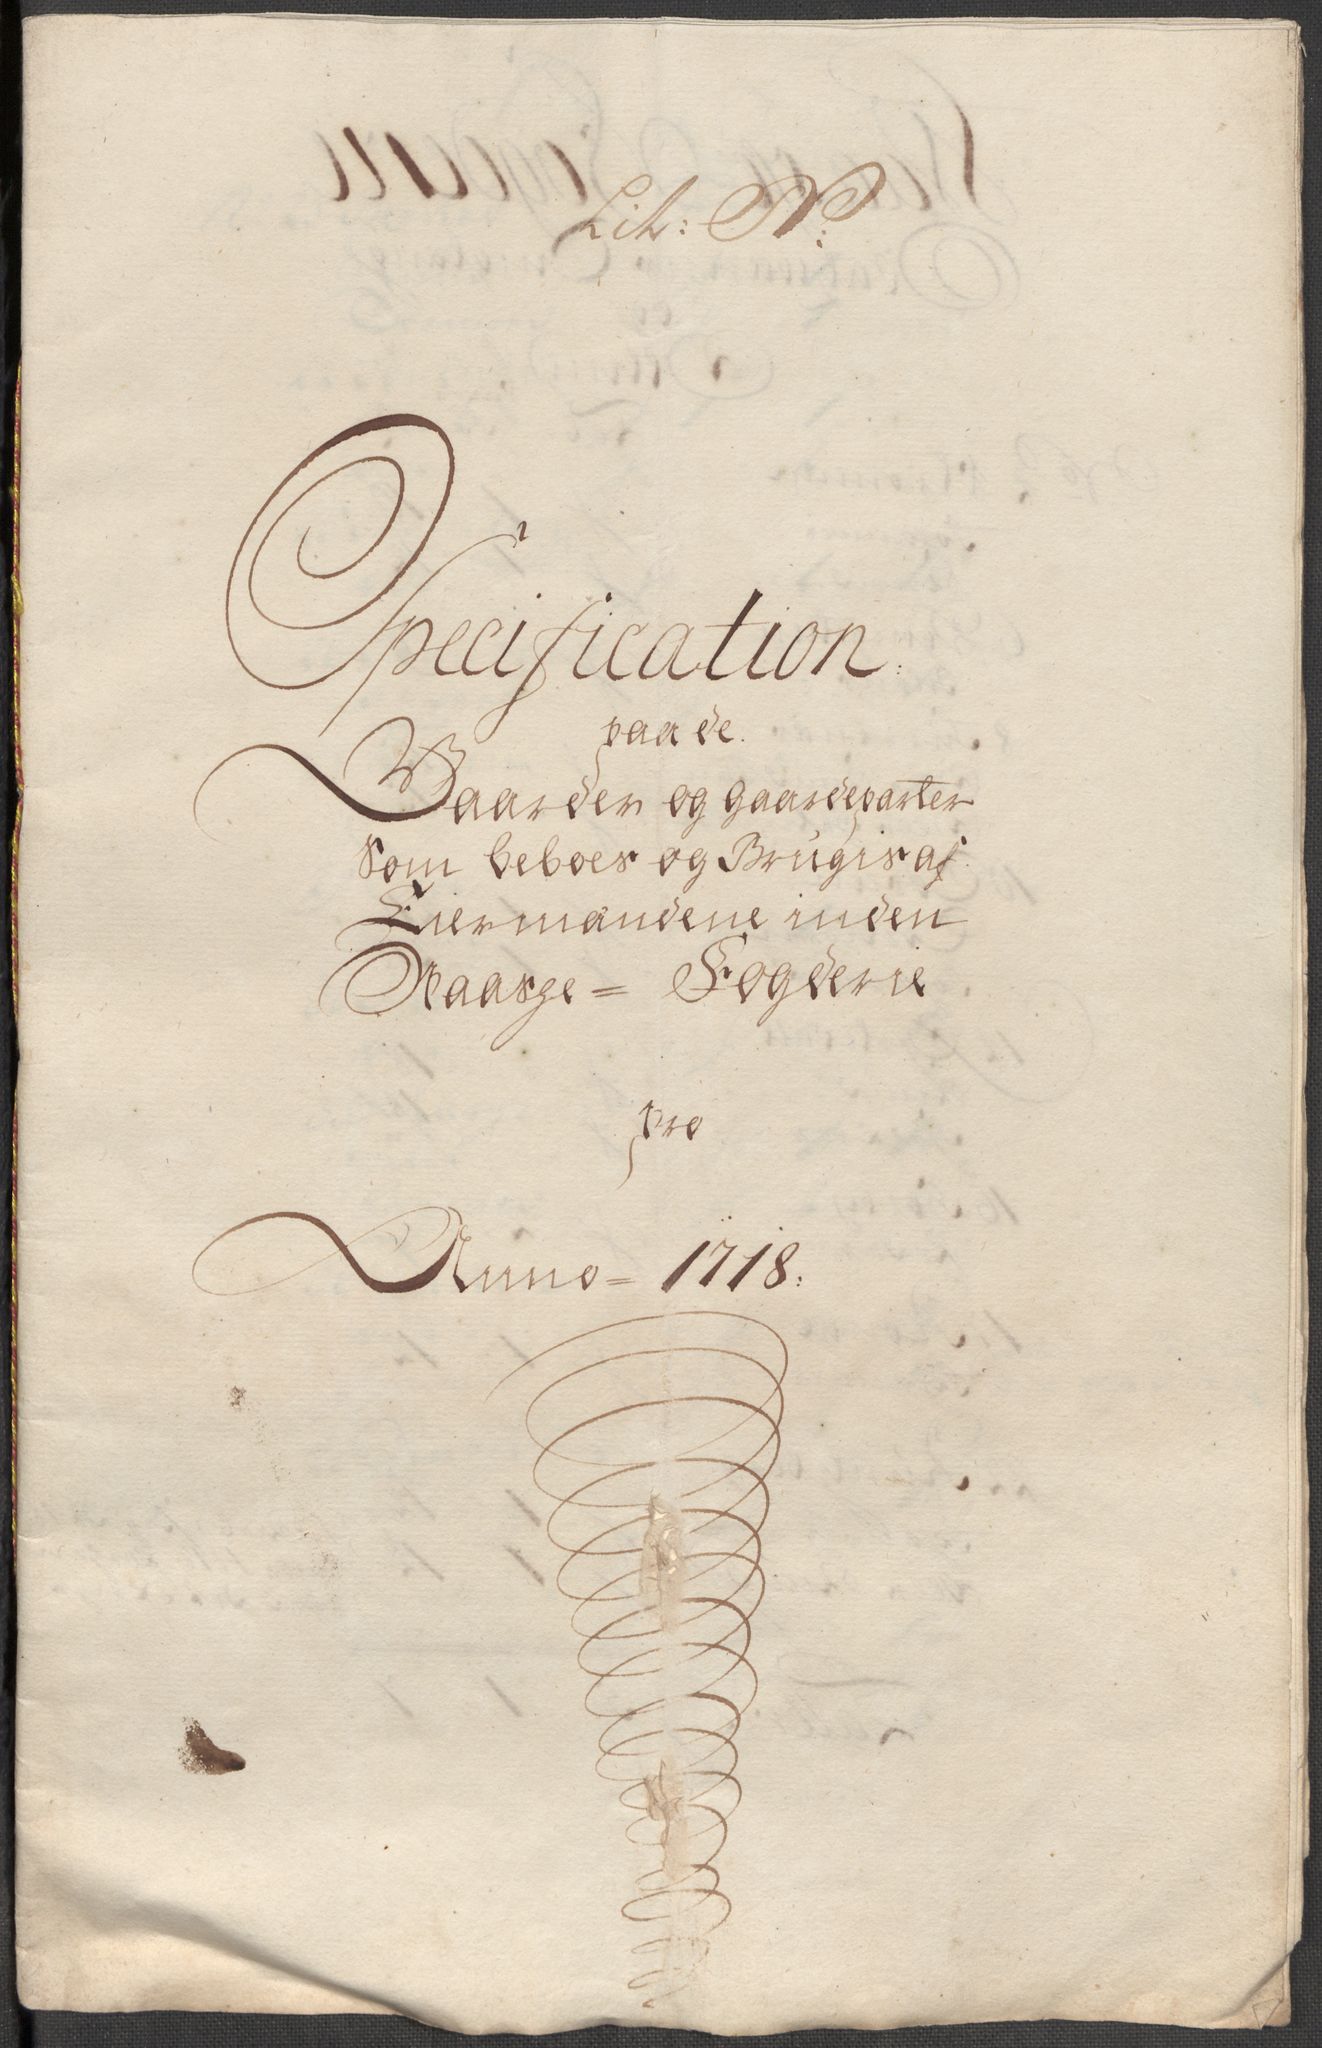 Lit: N:
Specification
paa de
Gaarder og gaardeparter
som beboes og Brugis af
Eiermændene inden
Staasge= Fogderie
pro
Anno= 1718: